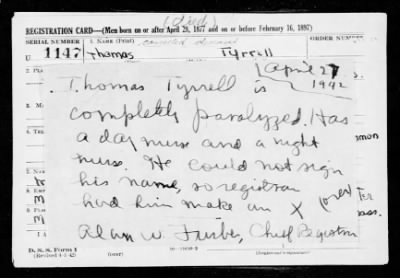 (died)
REGISTRATION CARD—(Men born on or after April 28, 1877 and on or before February 16, 1897)
SERIAL NUMBER 1. NAME (Print) ORDER NUMBER
U 1147 Thomas Tyrrell
April 27
1942
Thomas Tyrrell is
completely paralyzed. Has
a day nurse and a night
nurse. He could not sign
his name, so registrar
had him make an X (over)
Alan W. Chief Registrar
D. S. S. Form 1
(Revised 4-1-42) (over)